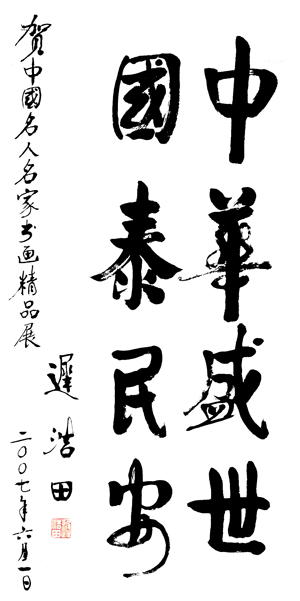 中華盛世
國泰民安
賀中國名人名家书画精品展
遲浩田
二〇〇七年六月一日